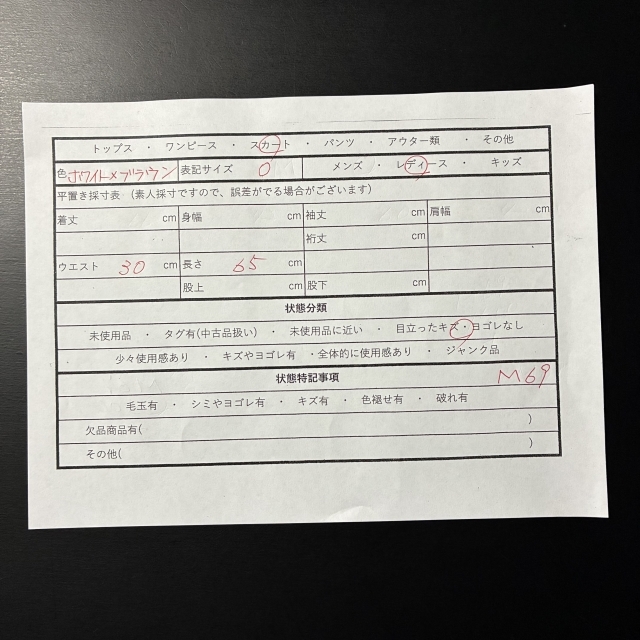 トップス ・ ワンピース ・ スカート ・ パンツ ・ アウター類 ・ その他
色 ホワイト×ブラウン 表記サイズ 0 メンズ ・ レディース ・ キッズ
平置き採寸表 (素人採寸ですので、誤差がでる場合がございます)
着丈 cm 身幅 cm 袖丈 cm 肩幅 cm
裄丈 cm
ウエスト 30 cm 長さ 65 cm
股上 cm 股下 cm
状態分類
未使用品 ・ タグ有(中古品扱い) ・ 未使用品に近い ・ 目立ったキズ・ヨゴレなし
少々使用感あり ・ キズやヨゴレ有 ・全体的に使用感あり ・ ジャンク品
状態特記事項 M69
毛玉有 ・ シミやヨゴレ有 ・ キズ有 ・ 色褪せ有 ・ 破れ有
欠品商品有( )
その他( )